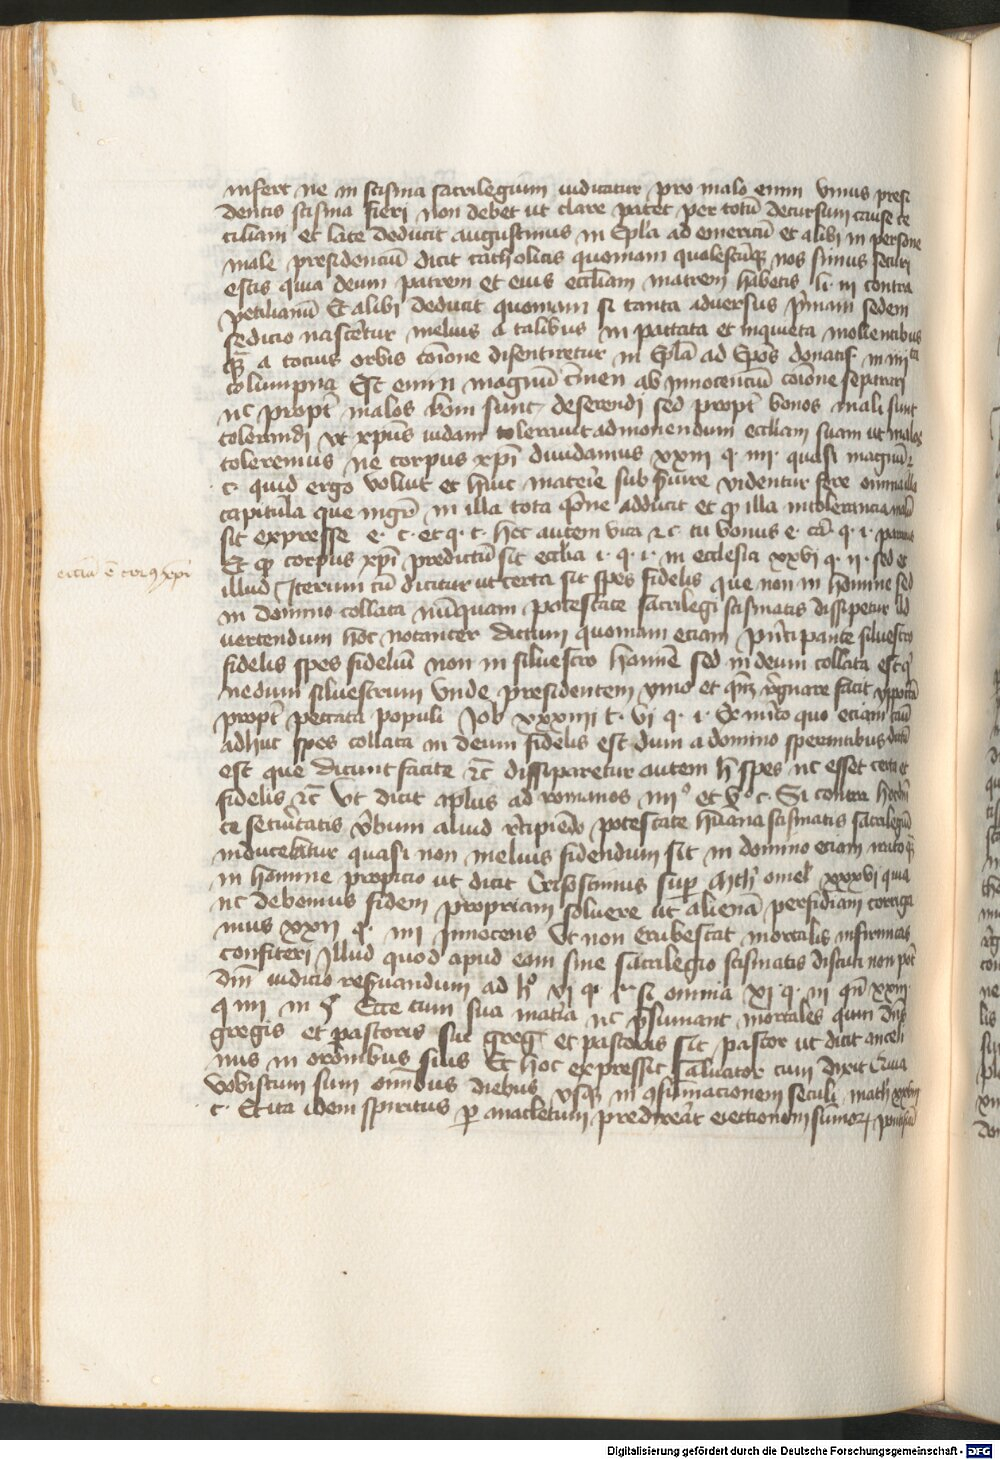 infert ne in scisma sacrilegium iudicatur pro malo enim vnius presi
dentis scisma fieri non debet ut clare patet per totū decursum cause ce
ciliam et late deducit augustinus in Epla ad emeritū et alibi in persone
male presidenciū dicit catholicis quoniam qualescūqꝫ nos simus securi
estis quia deum patrem et eius eccliam matrem habetis li iii contra
petilianū Et alibi deducit quoniam si tanta adversus primam sedem
sedicio nasceretur melius a talibus in peccata et inquieta
a tocius orbis coīone disentiretur in Epla ad Epos donatis in iiii ta
columpna Est enim magnū crimen ab innocenciū coīone separari
nc propter malos boni sunt deserendi sed propter bonos mali sunt
tolerandi vt xpus iudam toleravit admonendum eccliam suam ut malos
toleremus ne corpus xpi dividamus xxiii q. iiii. quasi magnū
c. quid ergo voluit et huic materie sub videntur fere omnia illa
capitula que in illa tota qōne adducit et qꝫ illa intolerancia
sit expresse e. c. et q. c. hec autem vita ⁊c. tu bonus e. cā. q. i.
Et qꝫ corpus xpi predictū sit ecclia i. q. i. in ecclesia xxvi q. ii. sed et
eccīa ē corpꝰ xpi
illud Iterum cū dicitur ut certa sit spes fidelis que non in homine sed
in domino collata nūquam potestate sacrilegi scismatis dissipetur Ad
vertendum hoc notanter dictum quoniam eciam principante silvestro
fidelis spes fideliū non in silvestro homīe sed in deum collata est
nedum silvestrum vnde presidentem ymo et regnare facit ypocritā
propter peccata populi Job xxxiiii c. vi q. i. Ex merito quo eciam
adhuc spes collata in deum fidelis est dum a domino sperantibus
est que dicunt facite ⁊c dissiparetur autem hec spes nc esset certa et
fidelis ⁊c Vt dicit aplus ad romanos iiii° et v° c. Si contra
ce securitatis verbum aliud recipiendo potestate humana scismatis sacrilegiū
inducebatur quasi non melius fidendum sit in domino eciam irato qꝫ
in homine propicio ut dicit Crisostimus super Math omel xxxvi quia
nc debemus fidem propriam solvere ut alienā perfidiam corriga
mus xxii q. iiii Innocens Vt non erubescat mortalis infirmitas
confiteri Illud quod apud eam sine sacrilegio scismatis discuti non pot
dm̄ iudicio reservandum ad h° vi q. si omnia xi. q. iii qn xxiii
q iiii in § Ecce cum sua materia nc presumant mortales quin dn̄s
gregis et pastoris sui gregis et pastoris sit pastor ut dicit
nus in orōnibus suis Et hoc expressit salvator cum dixit Quia
vobiscum sum omībus diebus vsqꝫ in cōsūmacionem seculi math
c. Et ita idem spiritus per anacletum predixerat eiectionem sūmoꝝ